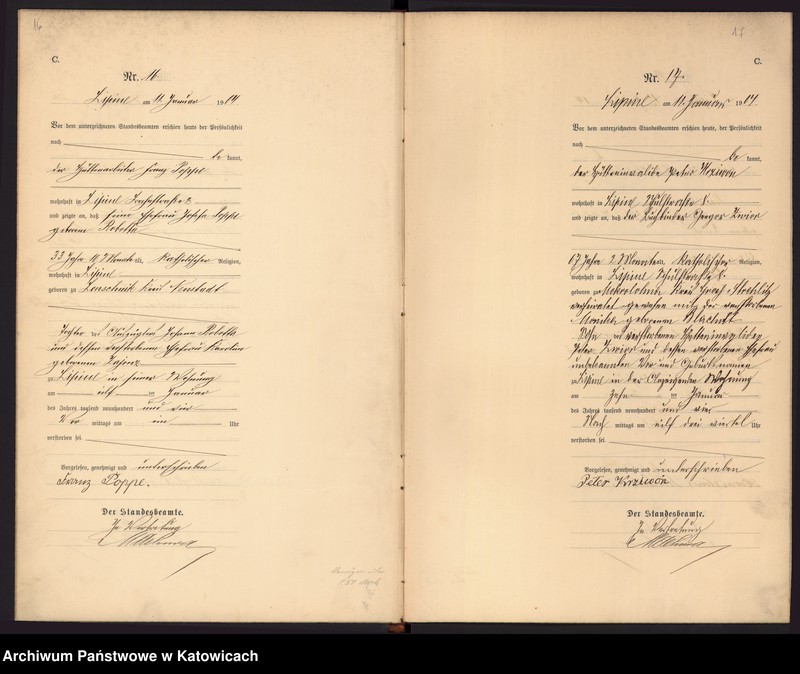 16
C.
Nr. 16.
Lipine am 11. Januar 1904.
Vor dem unterzeichneten Standesbeamten erschien heute, der Persönlichkeit
nach
be kannt,
der Hüttenarbeiter Franz Poppe
wohnhaft in Lipine
und zeigte an, daß seine Ehefrau Josefa Poppe
geborene Robotta
33 Jahre Monate alt, katholischer Religion,
wohnhaft in Lipine
geboren zu Kreis Neustadt
Tochter des Auszüglers Johann Robotta
und dessen verstorbenen Ehefrau Karoline
geborenen
zu Lipine in seiner Wohnung
am elf ten Januar
des Jahres tausend neunhundert und vier
Vor mittags um ein Uhr
verstorben sei.
Vorgelesen, genehmigt und unterschrieben
Franz Poppe.
Der Standesbeamte.
In Vertretung
17
C.
Nr. 17.
Lipine am 11. Januar 1904.
Vor dem unterzeichneten Standesbeamten erschien heute, der Persönlichkeit
nach
be kannt,
der Hütteninvalide Peter
wohnhaft in Lipine 8.
und zeigte an, daß der Gregor
67 Jahre 2 Monate alt, katholischer Religion,
wohnhaft in Lipine Schulstraße 8.
geboren zu Mokrolohna Kreis Groß Strehlitz
verheiratet gewesen mit der verstorbenen
Monika geborenen
Sohn des verstorbenen Hütteninvaliden
Peter und dessen verstorbenen Ehefrau
unbekannten Vor und Geburtsnamen
zu Lipine in der Wohnung
am zehn ten Januar
des Jahres tausend neunhundert und vier
Nach mittags um elf drei viertel Uhr
verstorben sei.
Vorgelesen, genehmigt und unterschrieben
Peter Krziwon
Der Standesbeamte.
In Vertretung
Archiwum Państwowe w Katowicach